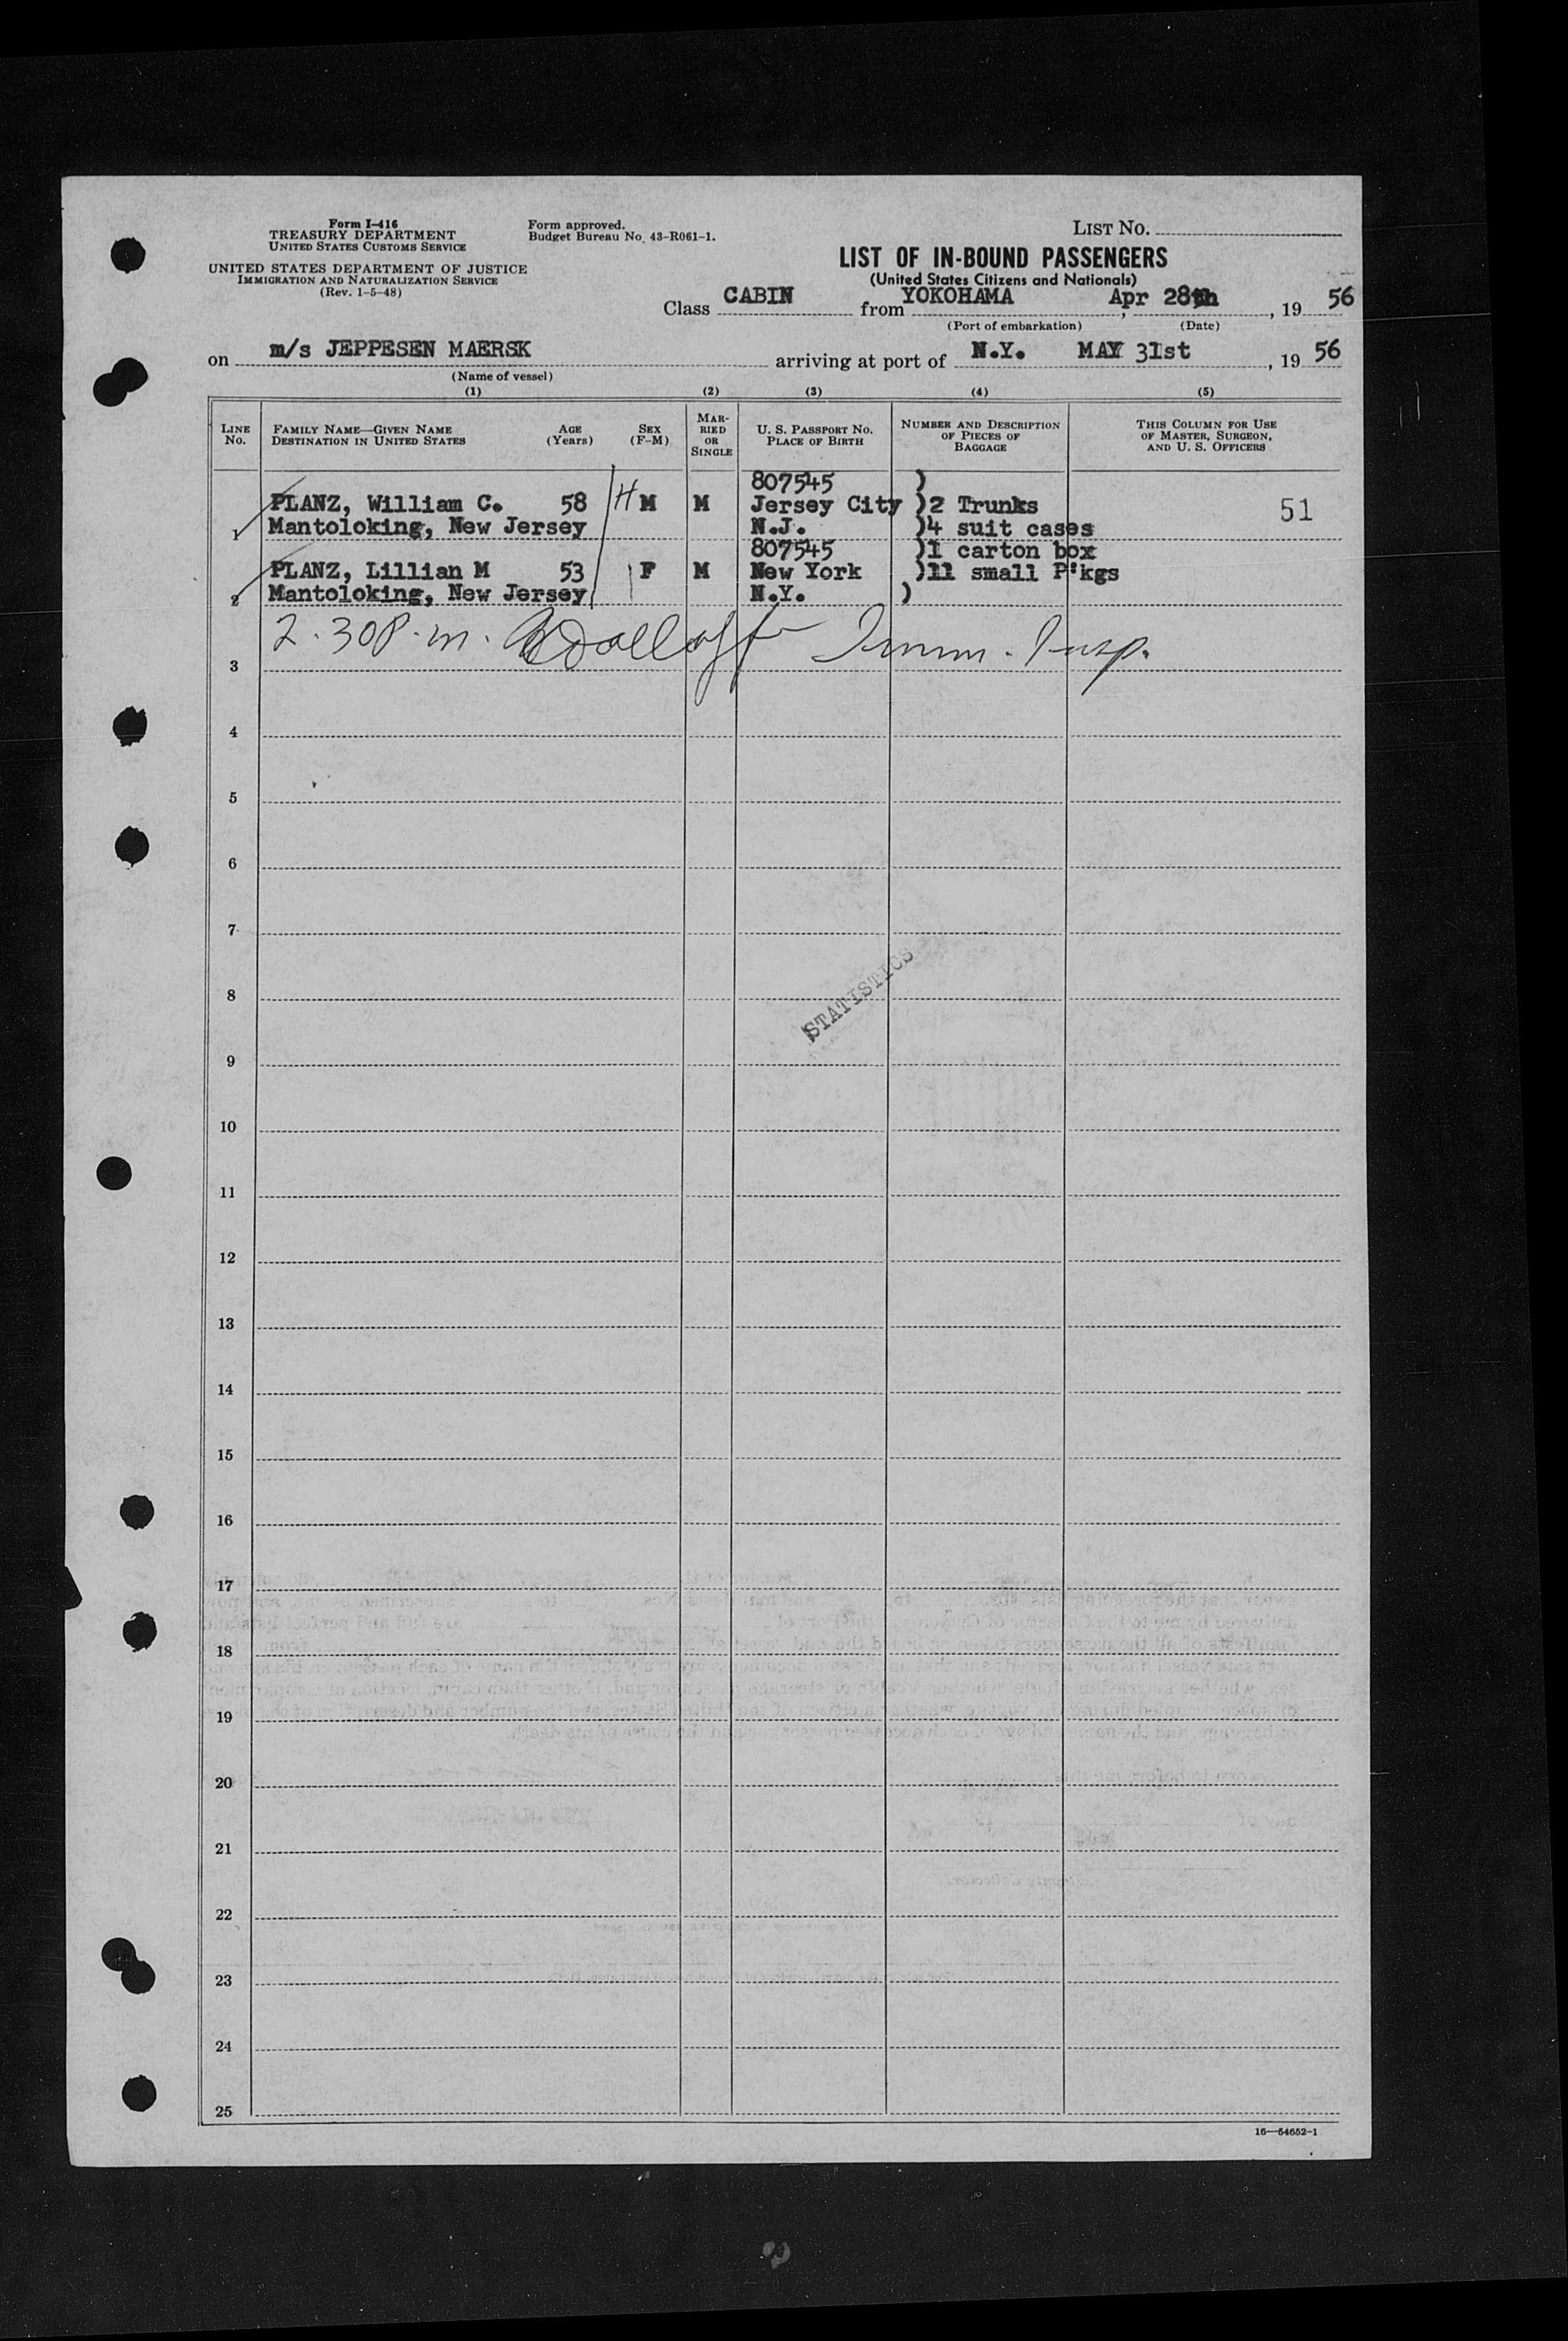 Form I-416
TREASURY DEPARTMENT
UNITED STATES CUSTOMS SERVICE
UNITED STATES DEPARTMENT OF JUSTICE
IMMIGRATION AND NATURALIZATION SERVICE
(Rev. 1-5-48)
Form approved.
Budget Bureau No. 43-R061-1.
LIST NO.
LIST OF IN-BOUND PASSENGERS
(United States Citizens and Nationals)
Class CABIN from YOKOHAMA, Apr 28th, 19 56
(Port of embarkation) (Date)
on m/s JEPPESEN MAERSK arriving at port of N.Y. MAY 31st, 19 56
(Name of vessel)
(1) (2) (3) (4) (5)
LINE No. FAMILY NAME—GIVEN NAME DESTINATION IN UNITED STATES AGE (Years) SEX (F-M) MARRIED OR SINGLE U. S. PASSPORT NO. PLACE OF BIRTH NUMBER AND DESCRIPTION OF PIECES OF BAGGAGE THIS COLUMN FOR USE OF MASTER, SURGEON, AND U. S. OFFICERS
807545 )
PLANZ, William C. 58 H M M Jersey City )2 Trunks 51
1 Mantoloking, New Jersey N.J. )4 suit cases
807545 )1 carton box
PLANZ, Lillian M 53 F M New York )11 small P'kgs
2 Mantoloking, New Jersey N.Y. )
2.30 P.m. Imm. Insp.
3
4
5
6
7
8
STATISTICS
9
10
11
12
13
14
15
16
17
18
19
20
21
22
23
24
25
16—54652-1